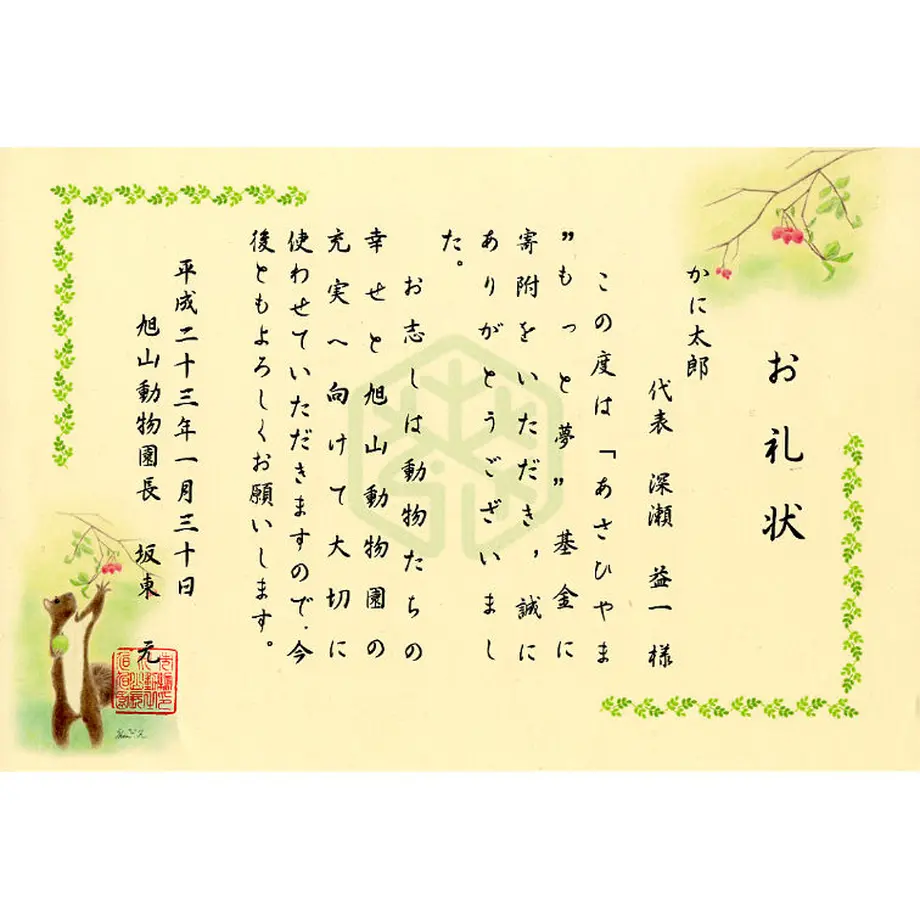 お礼状
かに太郎
代表 深瀬 益一 様
この度は「あさひやま
”もっと夢”基金に
寄附をいただき，誠に
ありがとうございまし
た。
お志しは動物たちの
幸せと旭山動物園の
充実へ向けて大切に
使わせていただきますので，今
後ともよろしくお願いします。
平成二十三年一月三十日
旭山動物園長 坂東 元